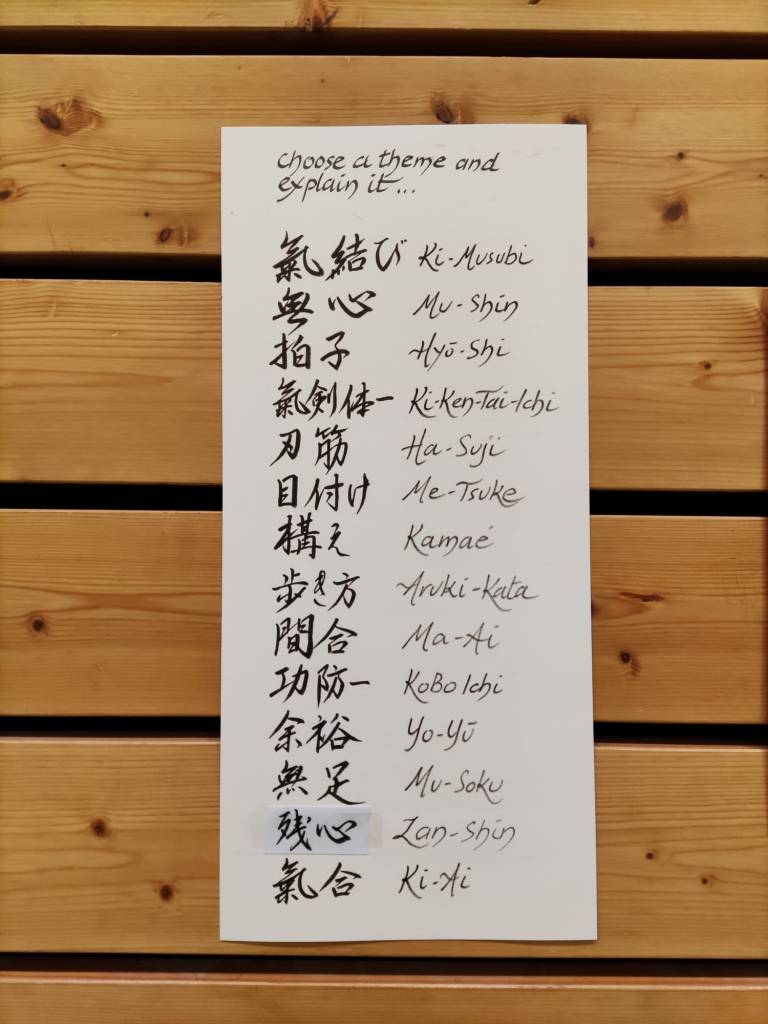 choose a theme and
explain it...
氣結び Ki-Musubi
無心 Mu-Shin
拍子 Hyō-Shi
氣剣体一 Ki-Ken-Tai-Ichi
刃筋 Ha-Suji
目付け Me-Tsuke
構え Kamaé
歩き方 Aruki-Kata
間合 Ma-Ai
功防一 KoBo Ichi
余裕 Yo-Yū
無足 Mu-Soku
残心 Zan-Shin
氣合 Ki-Ai